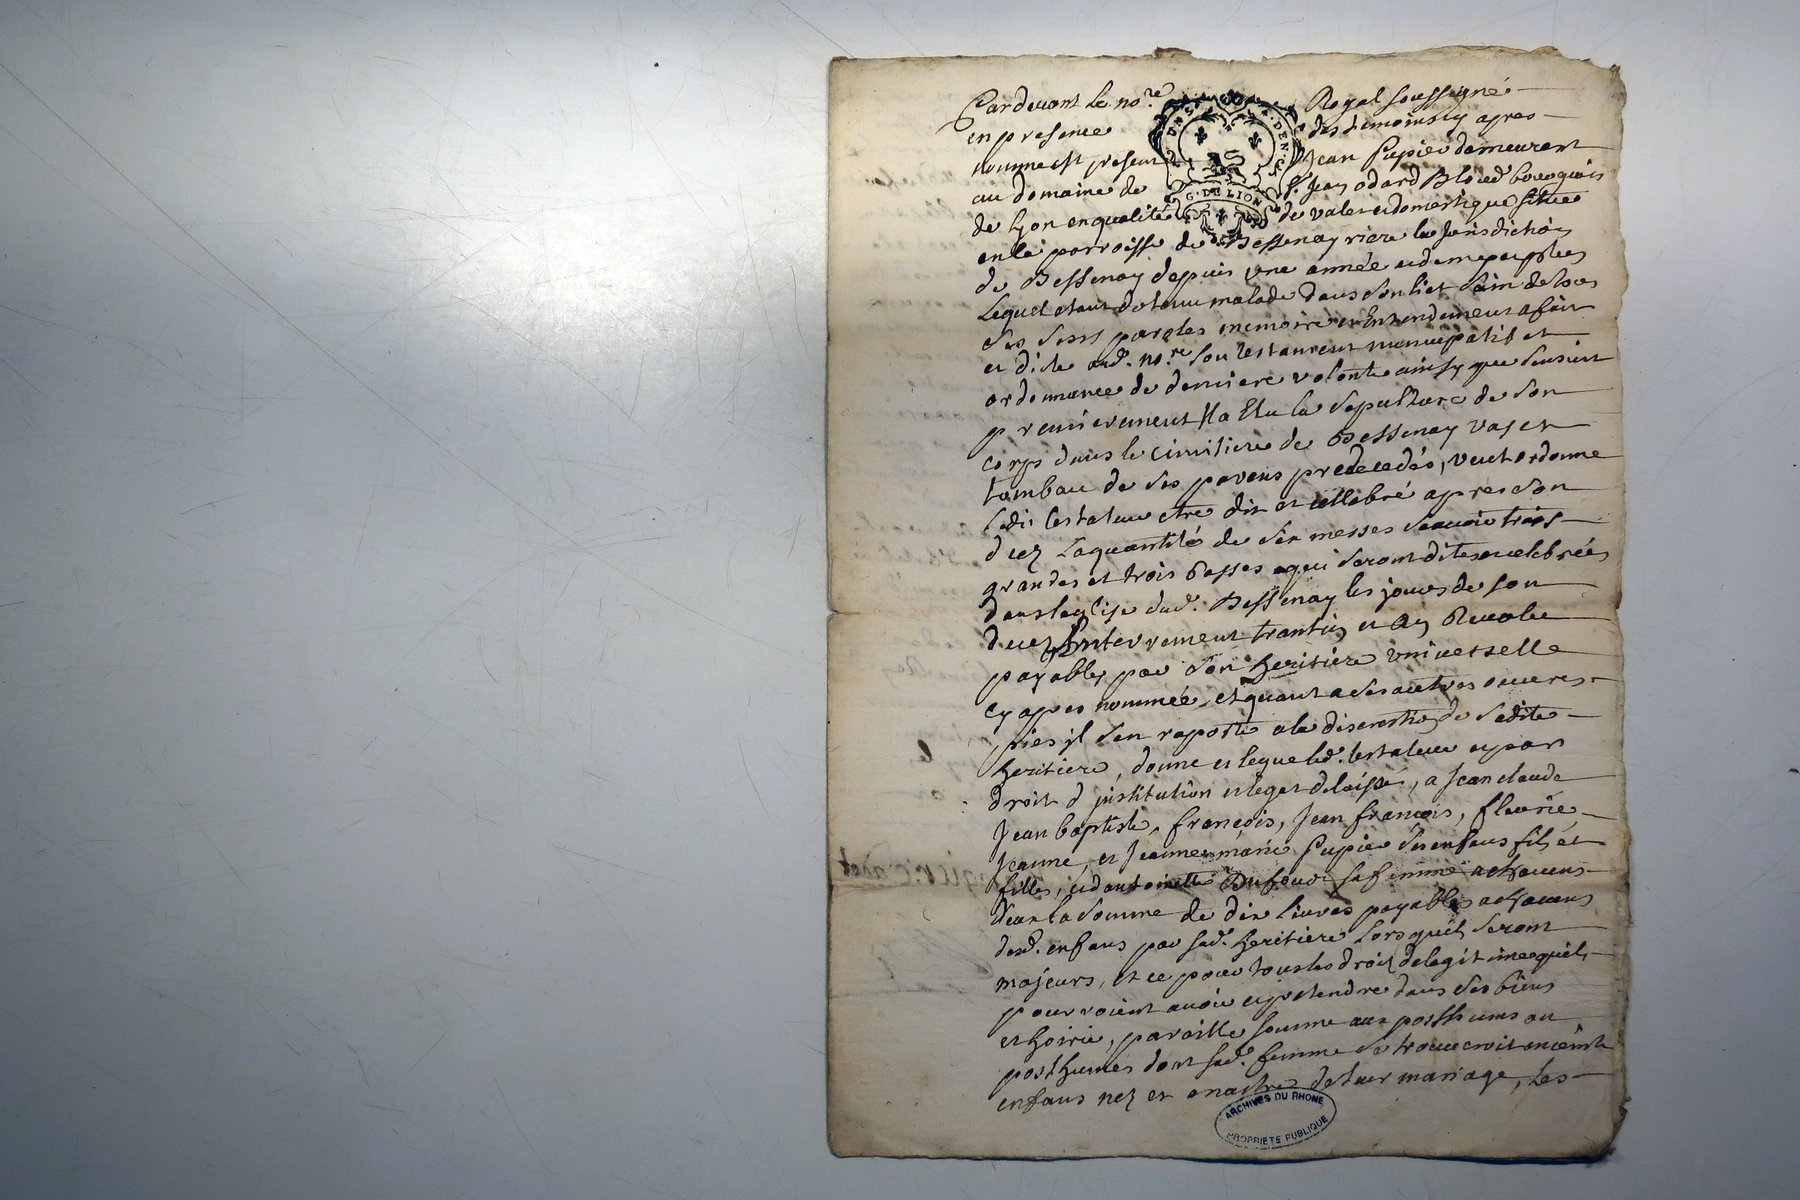 Pardevant le no.re Royal soussigné
en presence des temoins cy apres
nommes est present Jean Pupier demeurant
au domaine de S.r Jean odard Bloud bourgeois
de Lyon en qualité de valet et domestique située
en la parroisse de Bessenay riere la Jurisdiction
de Bessenay depuis une année et demye
Lequel etant detenu malade dans son lict sain de tous
ses sens paroles memoire et Entendement a fait
et dicte aud. no.re son testament nuncupatif et
ordonnance de derniere volonte ainsy que sensuit
premierement Il a Elu la sepulture de son
corps dans le cimitiere de Bessenay vas et
tombau de ses parens predecedés, veut ordonne
ledit testateur etre dit et cellebré apres son
decez la quantité de six messes scauoir trois
grandes et trois basses qui seront dites et celebrées
dans leglise dud. Bessenay les jours de son
decez Enterrement trantin et An Reuolu
payables par son heritiere vniuerselle
cy apres nommée, et quant a ses autres oeuures
pies il s'en raporte a la discretion de sadite
heritiere, donne et legue led. testateur et par
droit d'institution et leger delaisse, a Jean claude
Jean baptiste, francois, Jean francois, fleurie
Jeanne, et Jeanne marie Pupier ses enfans fils et
filles, et d'antoinette Dufour sa femme a chacuns
d'eux la somme de dix liures payables a chacuns
desd. enfans par sad. heritiere lorsquils seront
majeurs, et ce pour tous les droits de legitime quils
pourroient auoir et pretendre dans ses biens
et hoirie, pareille somme aux posthumes ou
posthumes dont sad. femme se trouueroit enceinte
enfans nez et a naitre de leur mariage, les
GDE LION
ARCHIVES DU RHONE
PROPRIETE PUBLIQUE